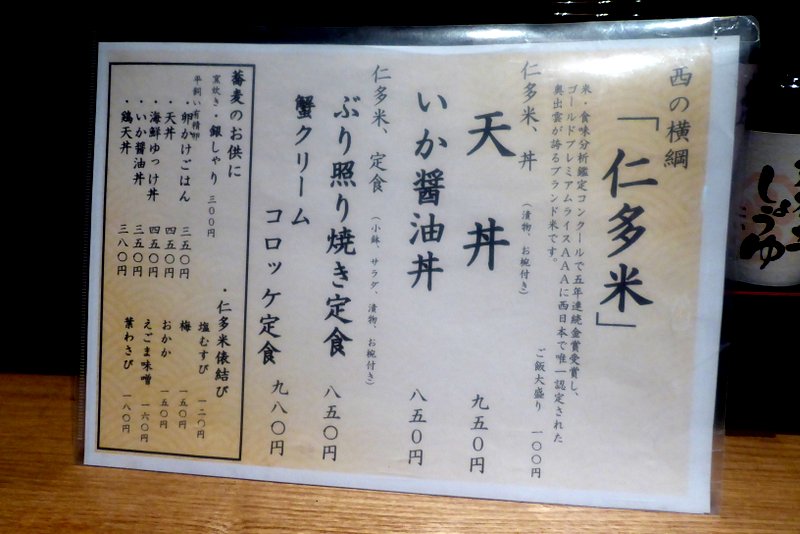 西の横綱
「仁多米」
米・食味分析鑑定コンクールで五年連続金賞受賞し、
ゴールドプレミアムライスAAAに西日本で唯一認定された
奥出雲が誇るブランド米です。
ご飯大盛り 一〇〇円
仁多米、丼 (漬物、お椀付き)
天丼 九五〇円
いか醤油丼 八五〇円
仁多米、定食 (小鉢、サラダ、漬物、お椀付き)
ぶり照り焼き定食 八五〇円
蟹クリームコロッケ定食 九八〇円
蕎麦のお供に
窯炊き・銀しゃり 三〇〇円
平飼い有精卵
・卵かけごはん 三五〇円
・天丼 四五〇円
・海鮮ゆっけ丼 四五〇円
・いか醤油丼 三五〇円
・鶏天丼 三八〇円
・仁多米俵結び
塩むすび 一二〇円
梅 一五〇円
おかか 一五〇円
えごま味噌 一六〇円
葉わさび 一八〇円
しょうゆ